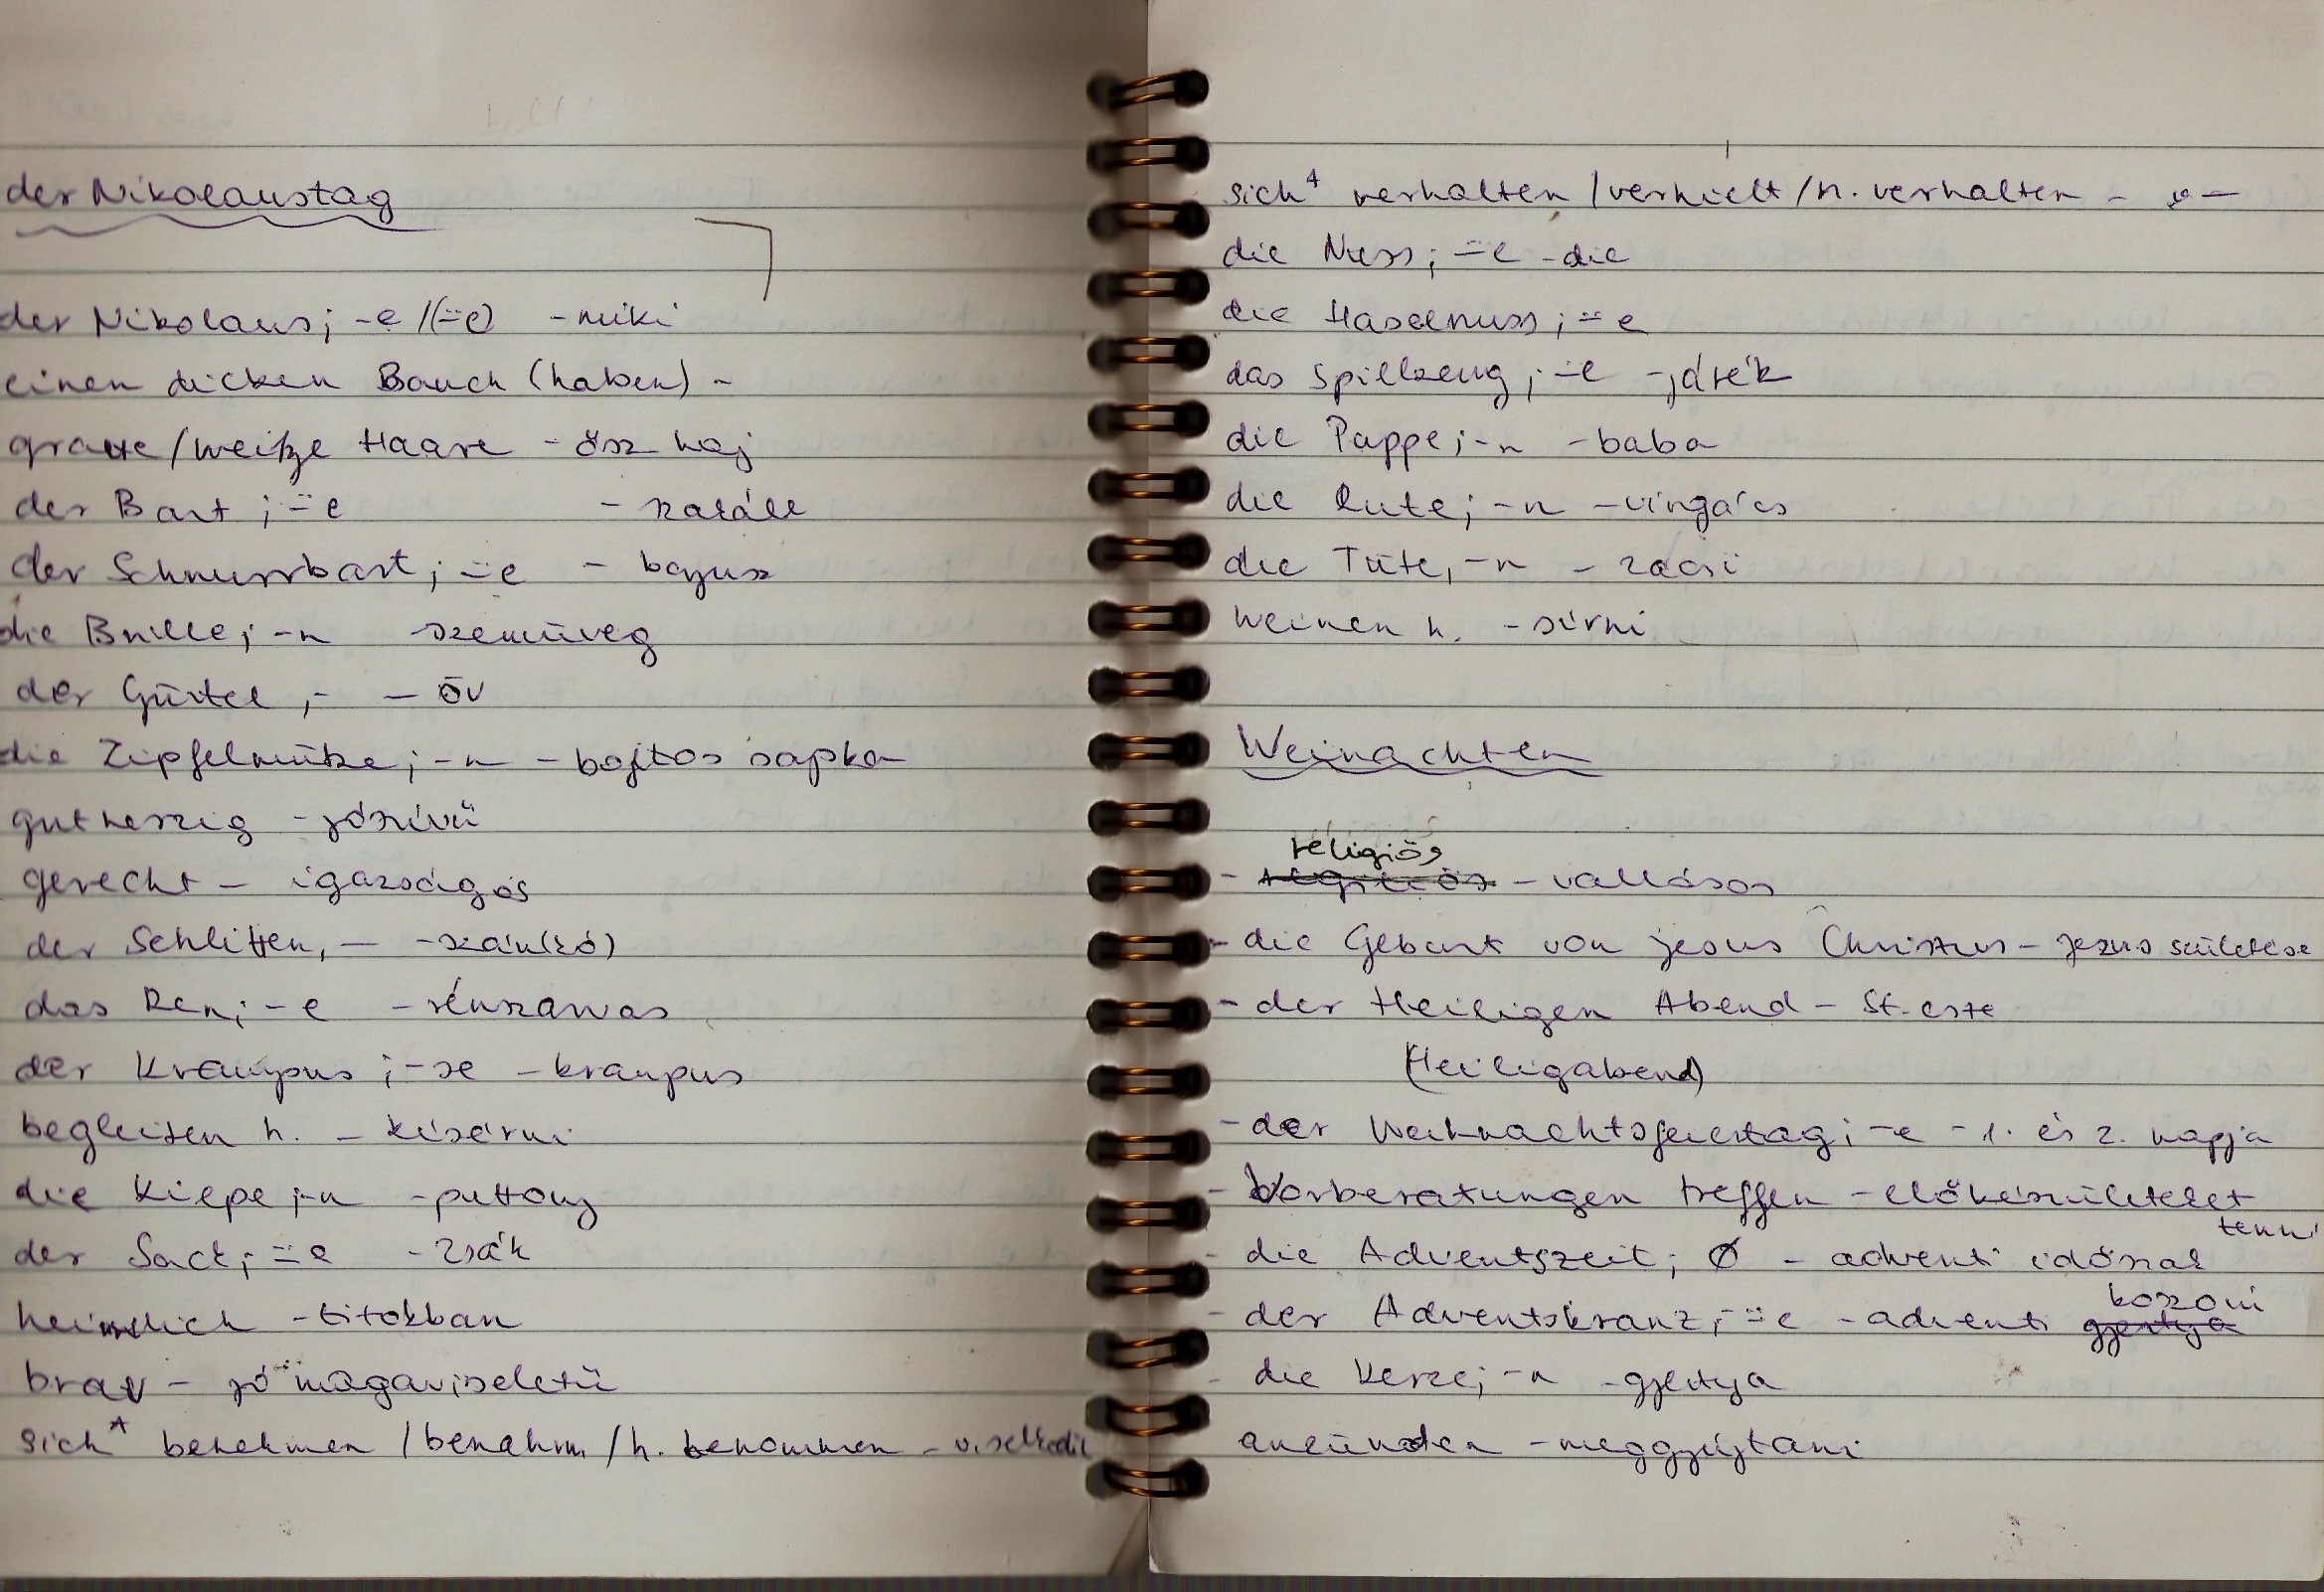 der Nikolaustag
der Nikolaus; -e /(-̈e) - miki
einen dicken Bauch (haben) -
graue/weiße Haare - ősz haj
der Bart ; -̈e - szakáll
der Schnurrbart; -̈e - bajusz
die Brille; -n - szemüveg
der Gürtel ,- - öv
die Zipfelmütze; -n - bojtos sapka
gutherzig - jószívű
gerecht - igazságos
der Schlitten, - - szán(kó)
das Ren; -e - rénszarvas
der Krampus ; -se - krampus
begleiten h. - kísérni
die Kiepe ;-n - puttony
der Sack; -̈e - zsák
heimlich - titokban
brav - jó magaviseletű
sich⁴ benehmen /benahm /h. benommen - viselkedik
sich⁴ verhalten /verhielt /h. verhalten - -"-
die Nuss; -̈e - dió
die Haselnuss; -̈e
das Spillzeug; -̈e - játék
die Puppe; -n - baba
die Rute; -n - virgács
die Tüte, -n - zacsi
weinen h. - sírni
Weinachten
religiös
- - vallásos
- die Geburt von Jesus Christus - Jezus születése
- der Heiligen Abend - St. este
(Heiligabend)
- der Weihnachtsfeiertag; -e - 1. és 2. napja
- Vorberatungen treffen - előkészületeket
tenni
- die Adventszeit; Ø - adventi időszak
koszorú
- der Adventskranz; -̈e - adventi gyertya
- die Kerze; -n - gyertya
anzünden - meggyújtani